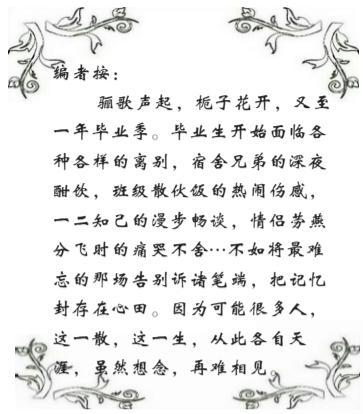 编者按：
骊歌声起，栀子花开，又至
一年毕业季。毕业生开始面临各
种各样的离别，宿舍兄弟的深夜
酣饮，班级散伙饭的热闹伤感，
一二知己的漫步畅谈，情侣劳燕
分飞时的痛哭不舍…不如将最难
忘的那场告别诉诸笔端，把记忆
封存在心田。因为可能很多人，
这一散，这一生，从此各自天
涯，虽然想念，再难相见。